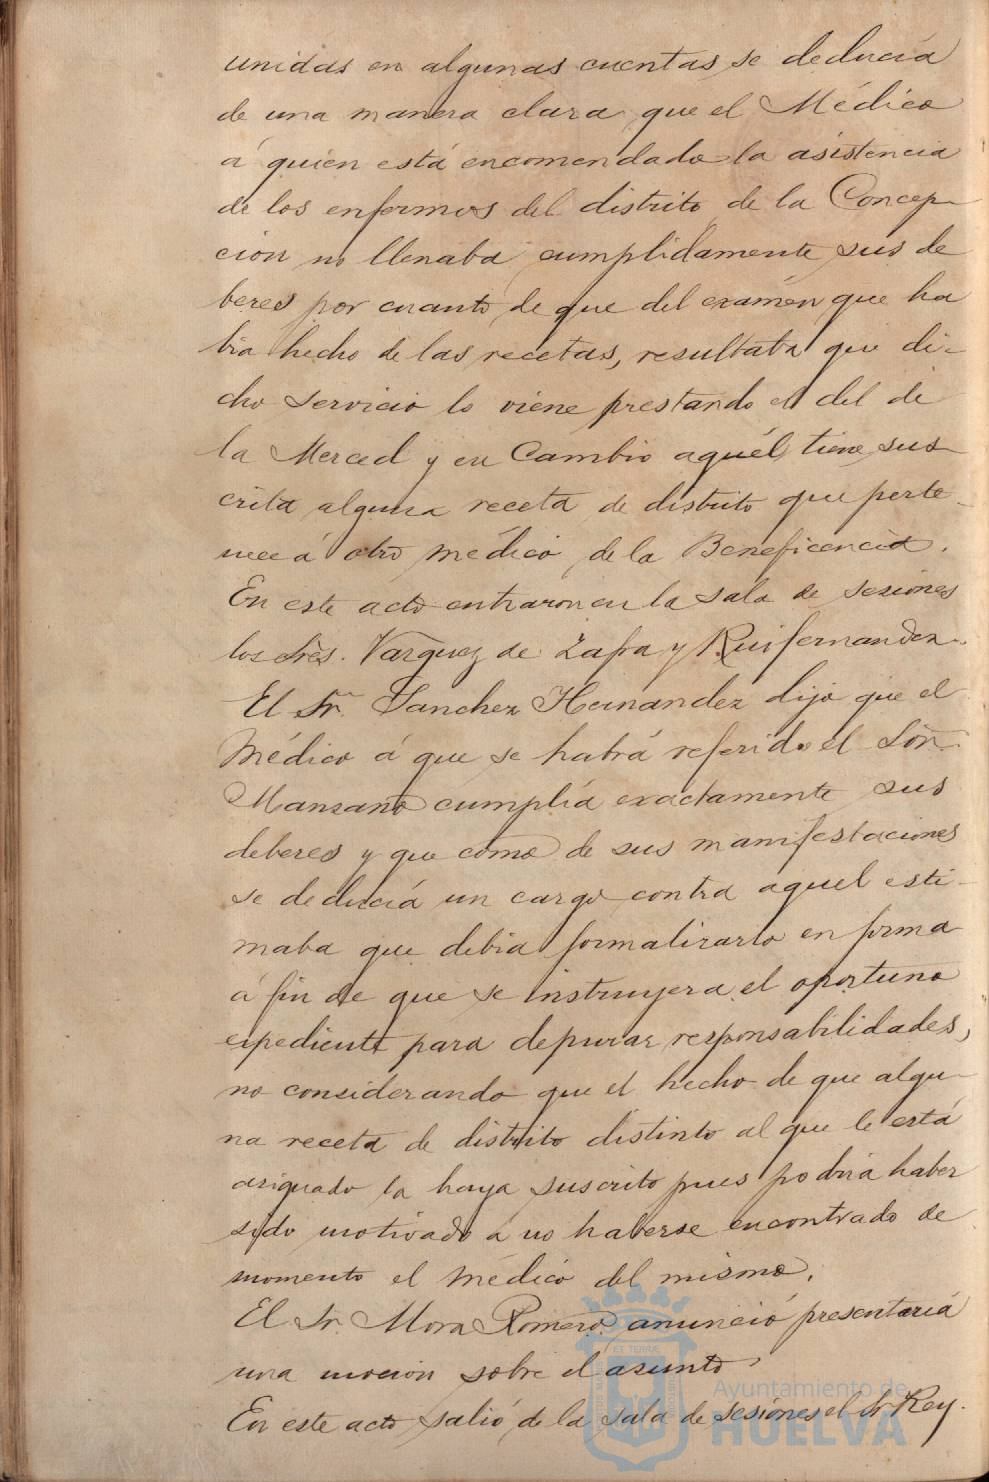 unidas en algunas cuentas se deducia
de una manera clara que el Médico
á quien está encomendado la asistencia
de los enfermos del distrito de la Concep-
cion no llenaba cumplidamente sus de
beres por cuanto de que del exámen que ha
bia hecho de las recetas, resultaba que di-
cho servicio lo viene prestando el del de
la Merced y en cambio aquél tiene sus
crita alguna receta de distrito que perte-
nece á otro médico de la Beneficencia.
En este acto entraron en la sala de sesiones
los Sres. Vazquez de Zafra y Ruifernandez.
El Sr. Sanchez Hernandez dijo que el
Médico á que se habrá referido el Señr.
Manzano cumplía exactamente sus
deberes y que como de sus manifestaciones
se deducía un cargo contra aquel esti-
maba que debia formalizarlo en forma
á fin de que se instruyera el oportuno
espediente para depurar responsabilidades,
no considerando que el hecho de que algu-
na receta de distrito distinto al que le está
asignado la haya suscrito pues podria haber
sido motivado á no haberse encontrado de
momento el médico del mismo.
El Sr. Mora Romero anunció presentaria
una mocion sobre el asunto.
En este acto salió de la sala de sesiones el Sr Rey.
Ayuntamiento de
HUELVA